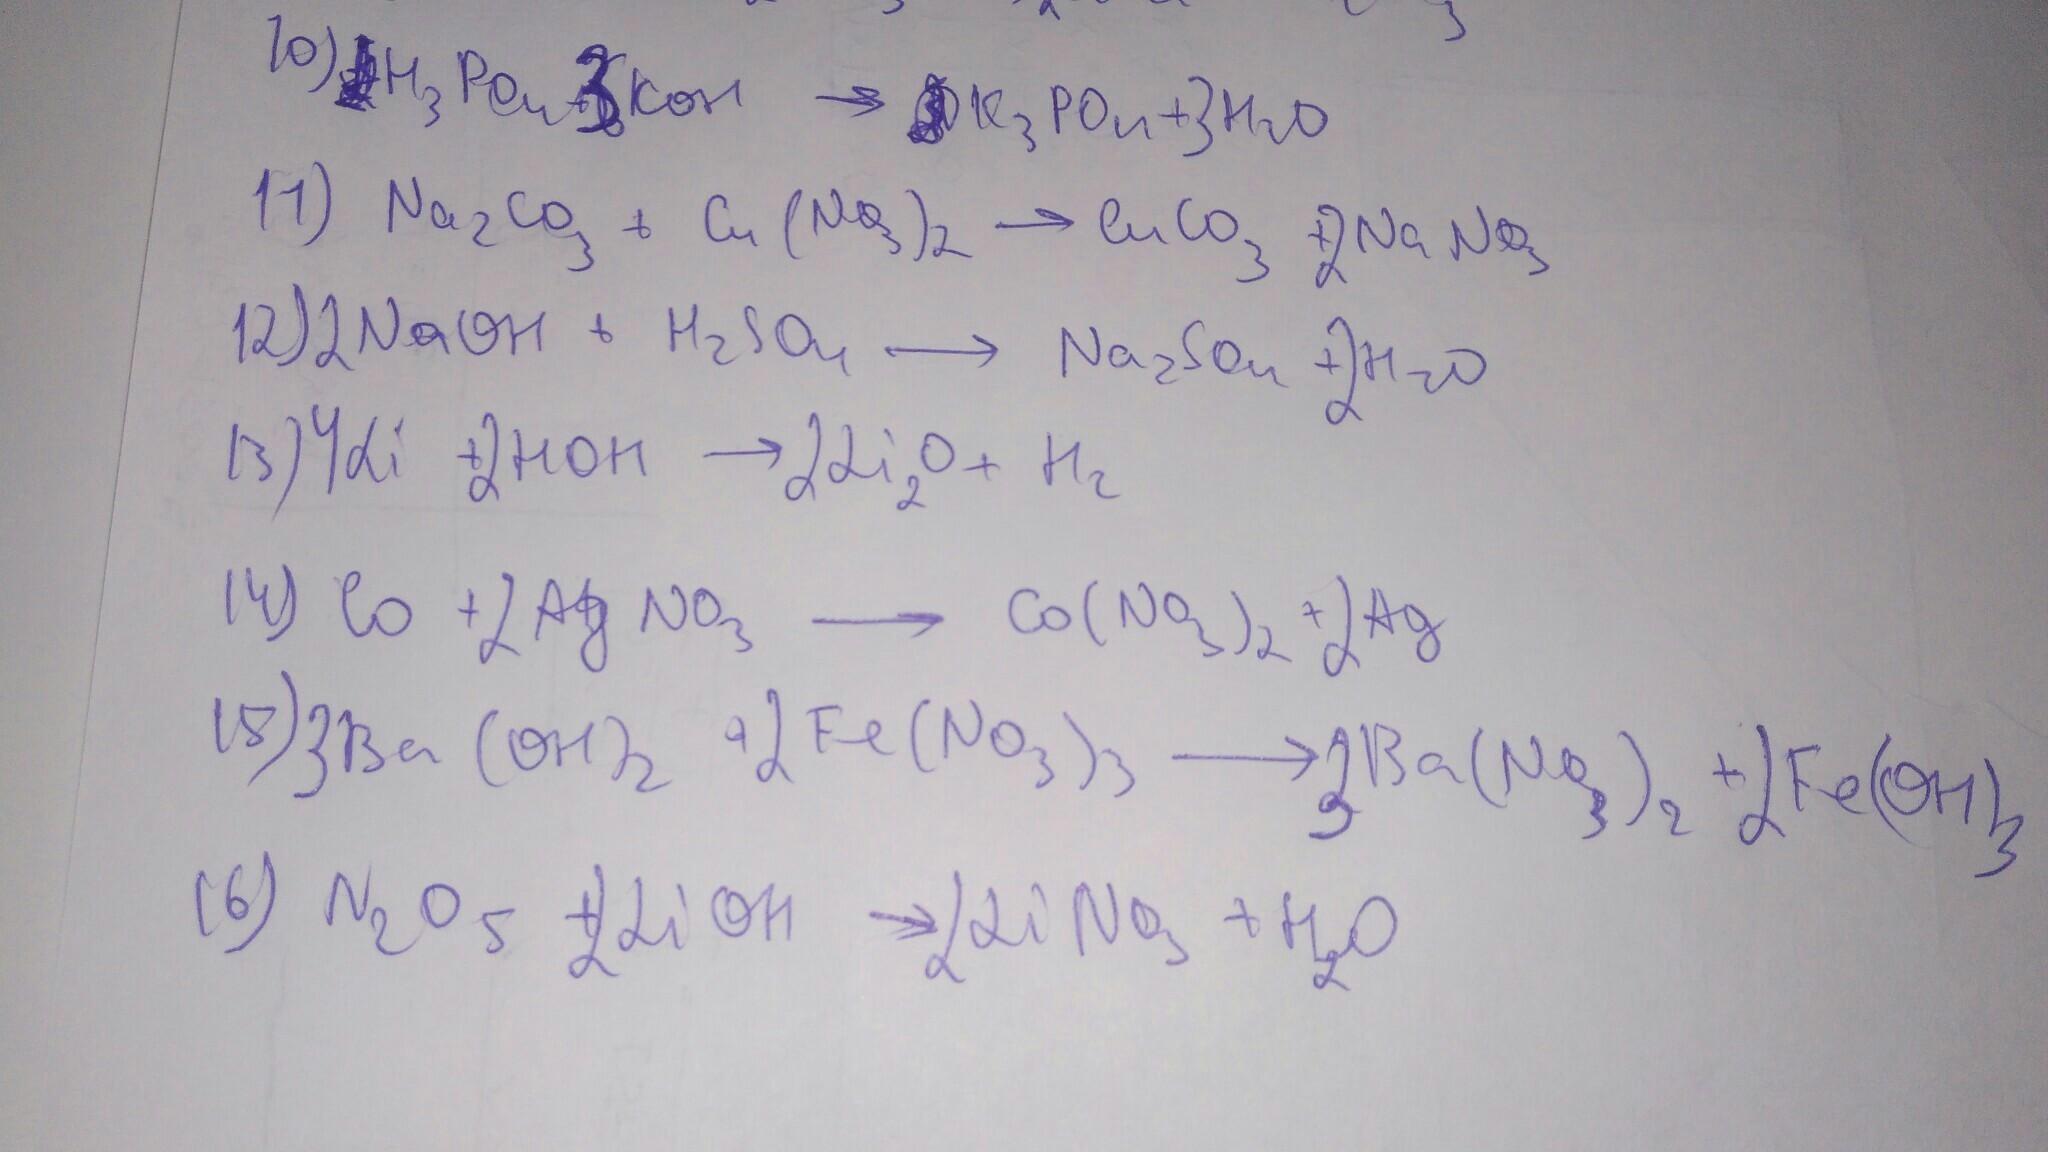 10) H₃PO₄ + 3KOH → K₃PO₄ + 3H₂O
11) Na₂CO₃ + Cu(NO₃)₂ → CuCO₃ + 2NaNO₃
12) 2NaOH + H₂SO₄ → Na₂SO₄ + 2H₂O
13) 4Li + 2HOH → 2Li₂O + H₂
14) Co + 2AgNO₃ → Co(NO₃)₂ + 2Ag
15) 3Ba(OH)₂ + 2Fe(NO₃)₃ → 3Ba(NO₃)₂ + 2Fe(OH)₃
16) N₂O₅ + 2LiOH → 2LiNO₃ + H₂O